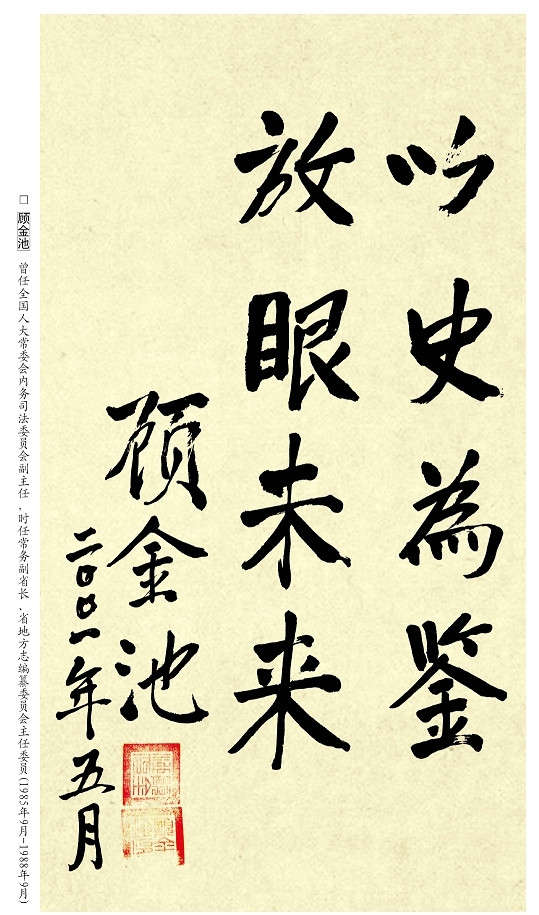 以史为鉴
放眼未来
顾金池
二〇〇一年五月
□ 顾金池 曾任全国人大常委会内务司法委员会副主任,时任常务副省长、省地方志编纂委员会主任委员(1985年9月-1988年9月)